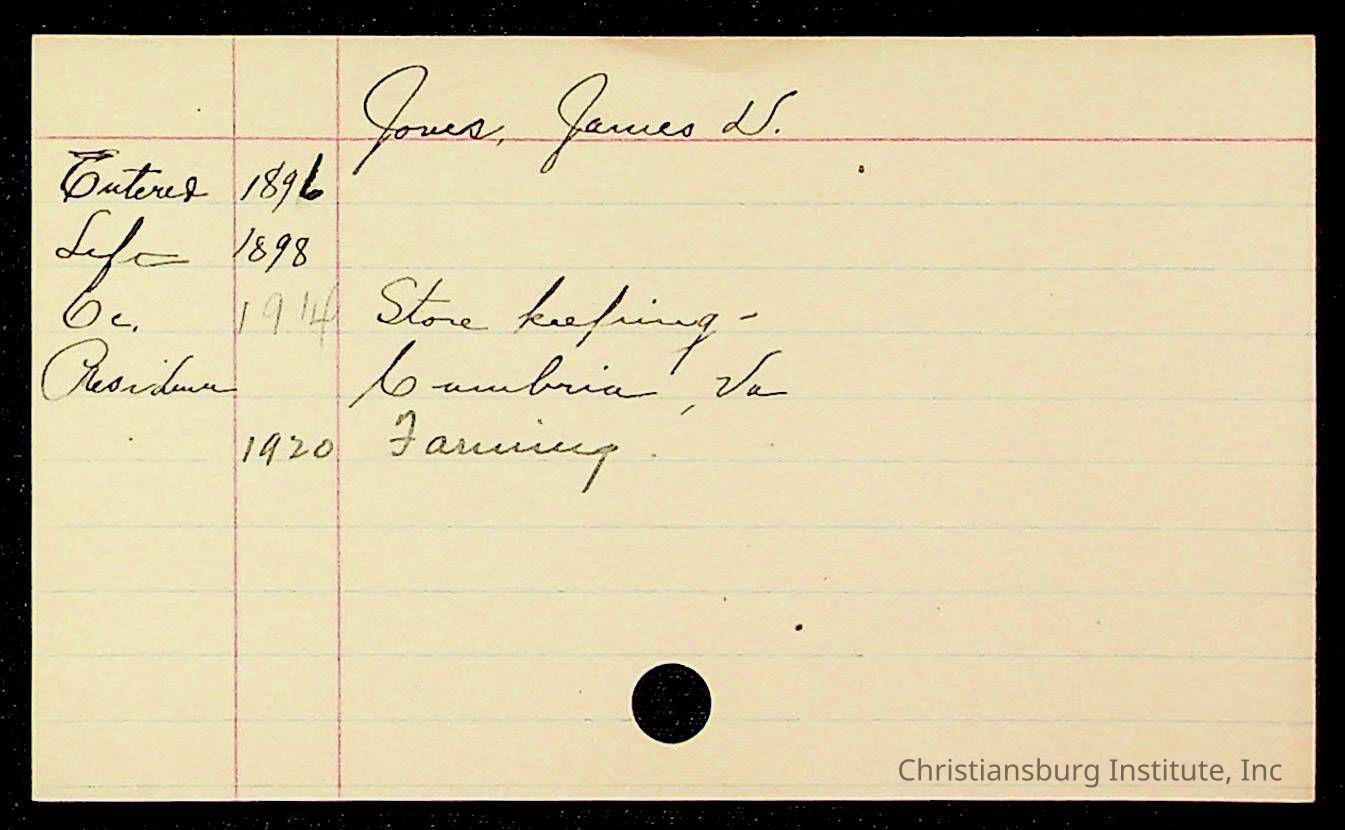 Jones, James W.
Entered 1896
Left 1898
Oc. 1914 Store keeping -
Residence Cambria, Va
1920 Farming.
Christiansburg Institute, Inc